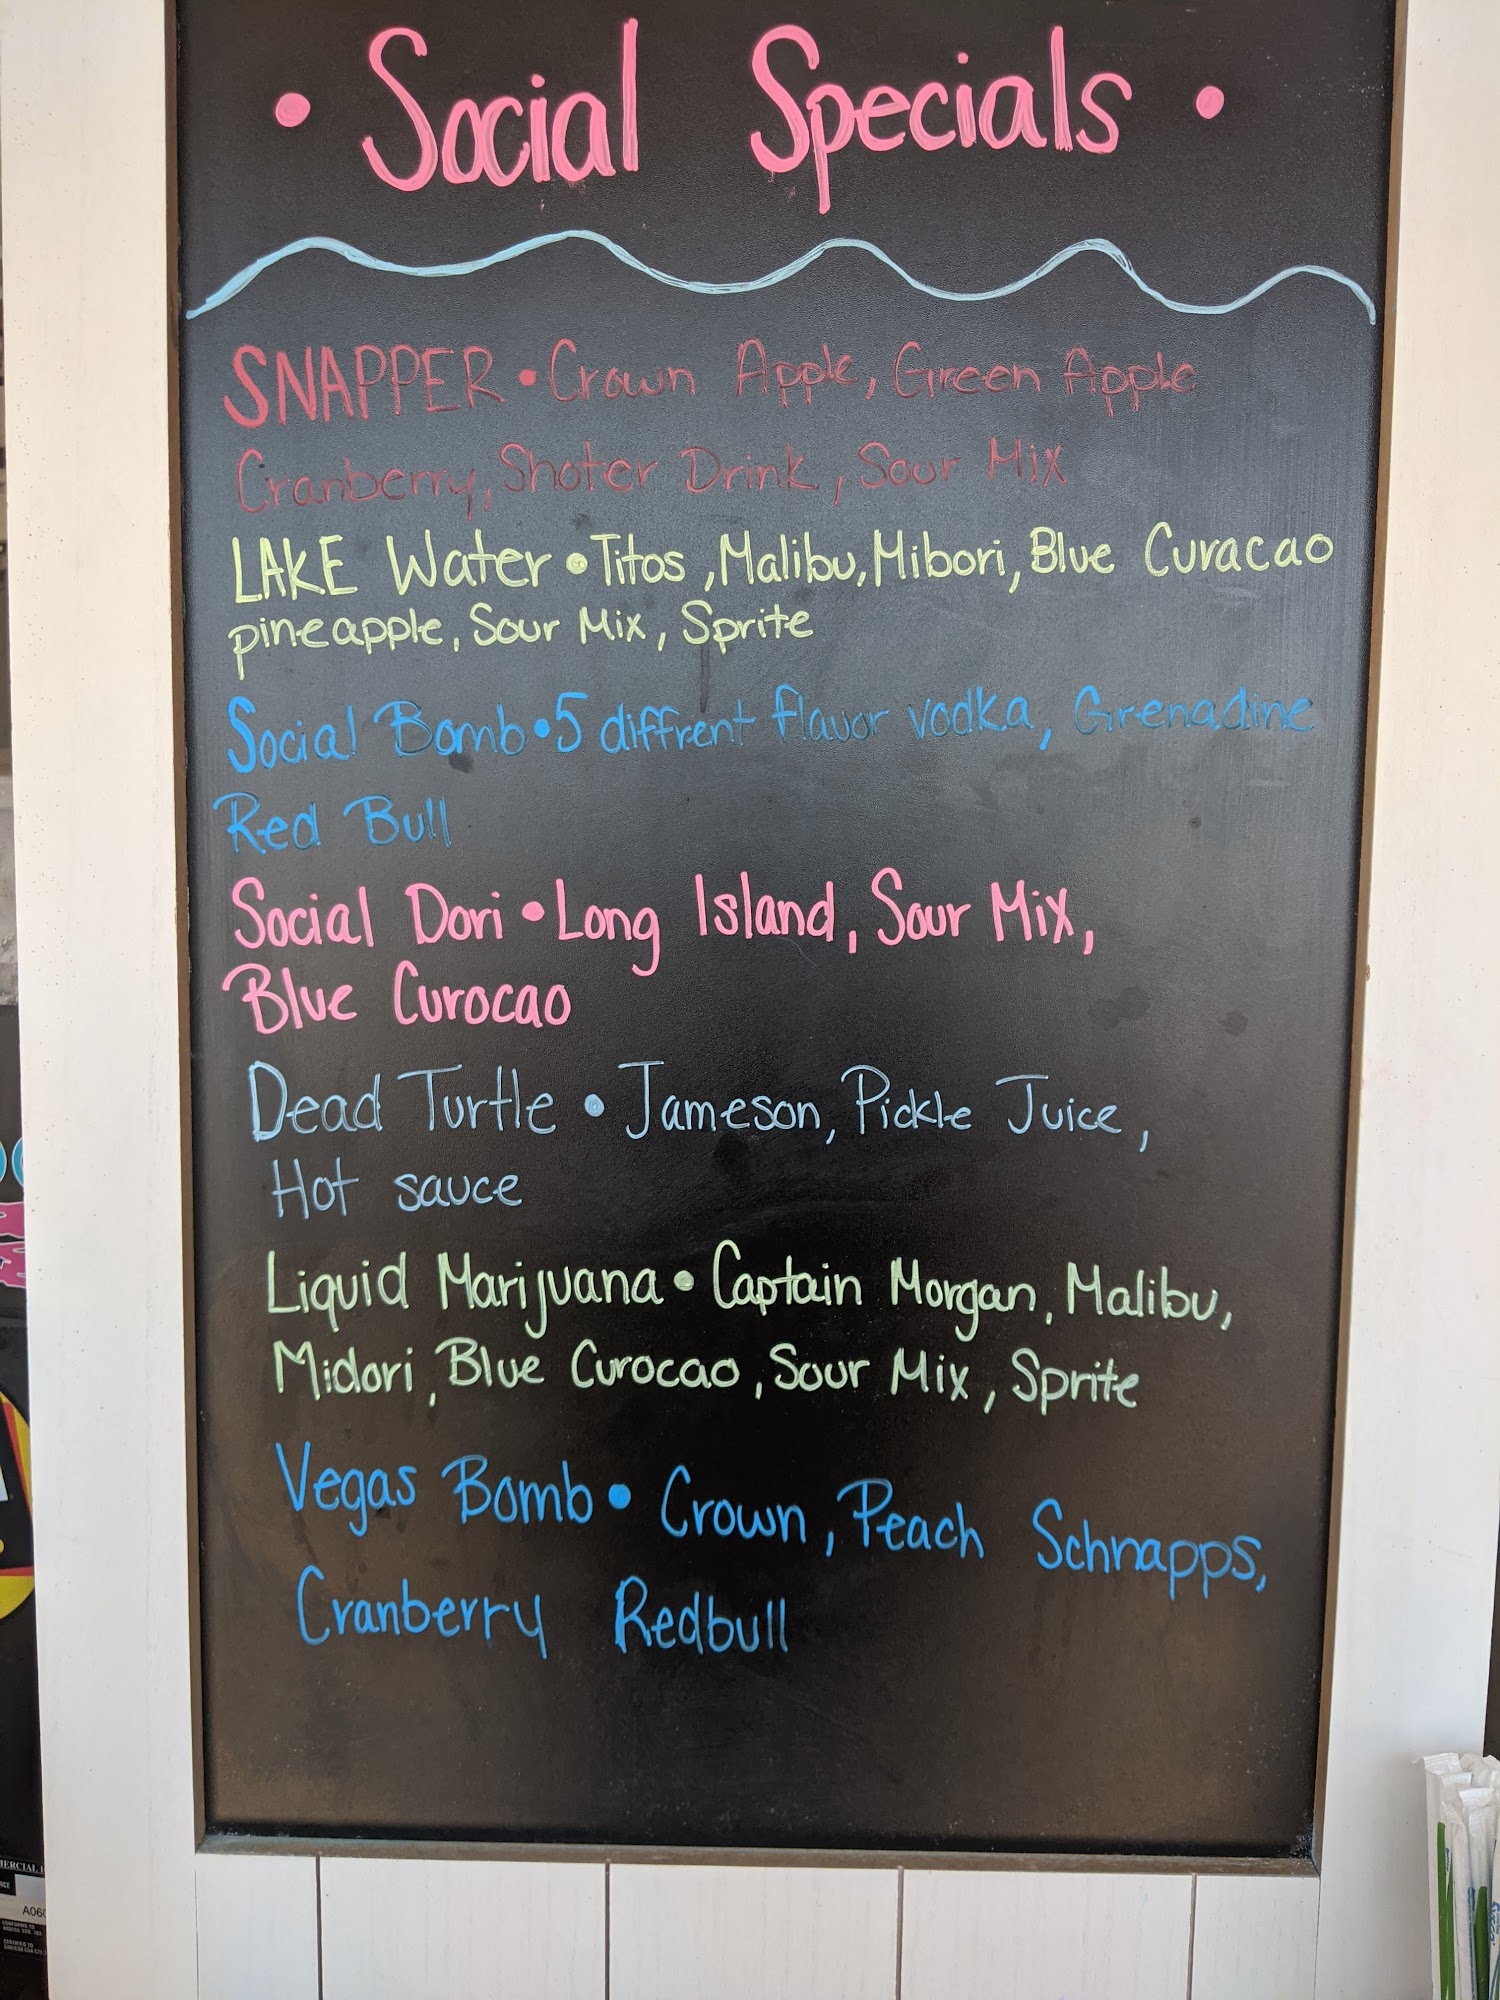 • Social Specials •
SNAPPER • Crown Apple, Green Apple
Cranberry, Shoter Drink, Sour Mix
LAKE Water • Titos, Malibu, Mibori, Blue Curacao
pineapple, Sour Mix, Sprite
Social Bomb • 5 diffrent flavor vodka, Grenadine
Red Bull
Social Dori • Long Island, Sour Mix,
Blue Curocao
Dead Turtle • Jameson, Pickle Juice,
Hot sauce
Liquid Marijuana • Captain Morgan, Malibu,
Midori, Blue Curocao, Sour Mix, Sprite
Vegas Bomb • Crown, Peach Schnapps,
Cranberry Redbull